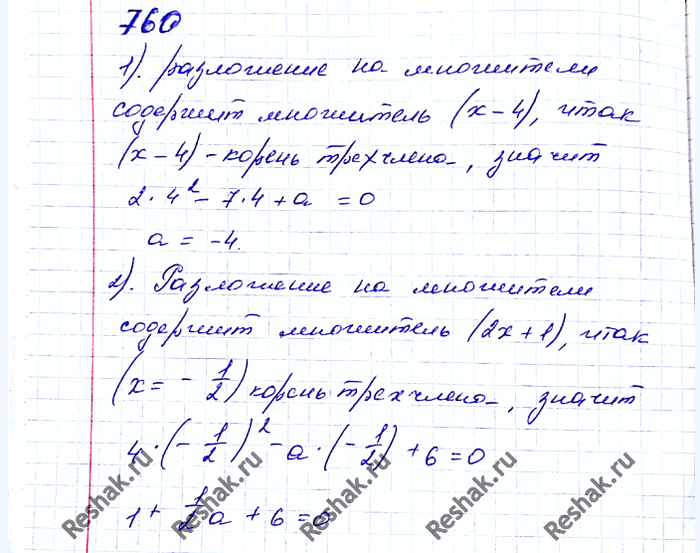 760
1). разложение на множители
содержит множитель (x-4), итак
(x-4) - корень трехчлена, значит
2·4² - 7·4 + a = 0
a = -4.
2). Разложение на множители
содержит множитель (2x+1), итак
(x = -1/2) корень трехчлена, значит
4·(-1/2)² - a·(-1/2) + 6 = 0
1 + 1/2 a + 6 = 0
Reshak.ru Reshak.ru Reshak.ru Reshak.ru Reshak.ru